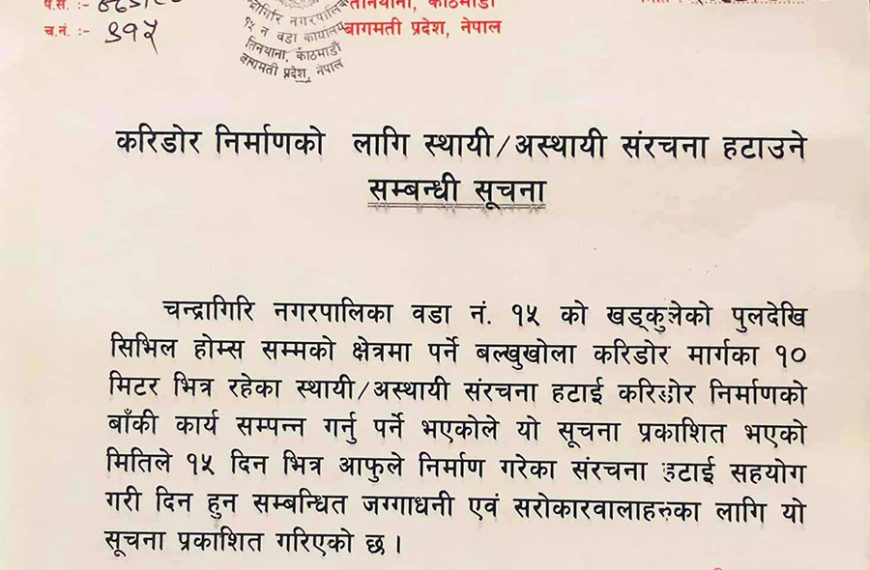 प.सं. :-
च.नं. :- ३१५
तिनथाना, काठमाडौं
बागमती प्रदेश, नेपाल
नगरपालिका
१५ नं वडा कार्यालय
तिनथाना, काठमाडौं
बागमती प्रदेश, नेपाल
करिडोर निर्माणको लागि स्थायी/अस्थायी संरचना हटाउने
सम्बन्धी सूचना
चन्द्रागिरि नगरपालिका वडा नं. १५ को खड्कुलेको पुलदेखि
सिभिल होम्स सम्मको क्षेत्रमा पर्ने बल्खुखोला करिडोर मार्गका १०
मिटर भित्र रहेका स्थायी/अस्थायी संरचना हटाई करिडोर निर्माणको
बाँकी कार्य सम्पन्न गर्नु पर्ने भएकोले यो सूचना प्रकाशित भएको
मितिले १५ दिन भित्र आफुले निर्माण गरेका संरचना हटाई सहयोग
गरी दिन हुन सम्बन्धित जग्गाधनी एवं सरोकारवालाहरुका लागि यो
सूचना प्रकाशित गरिएको छ ।